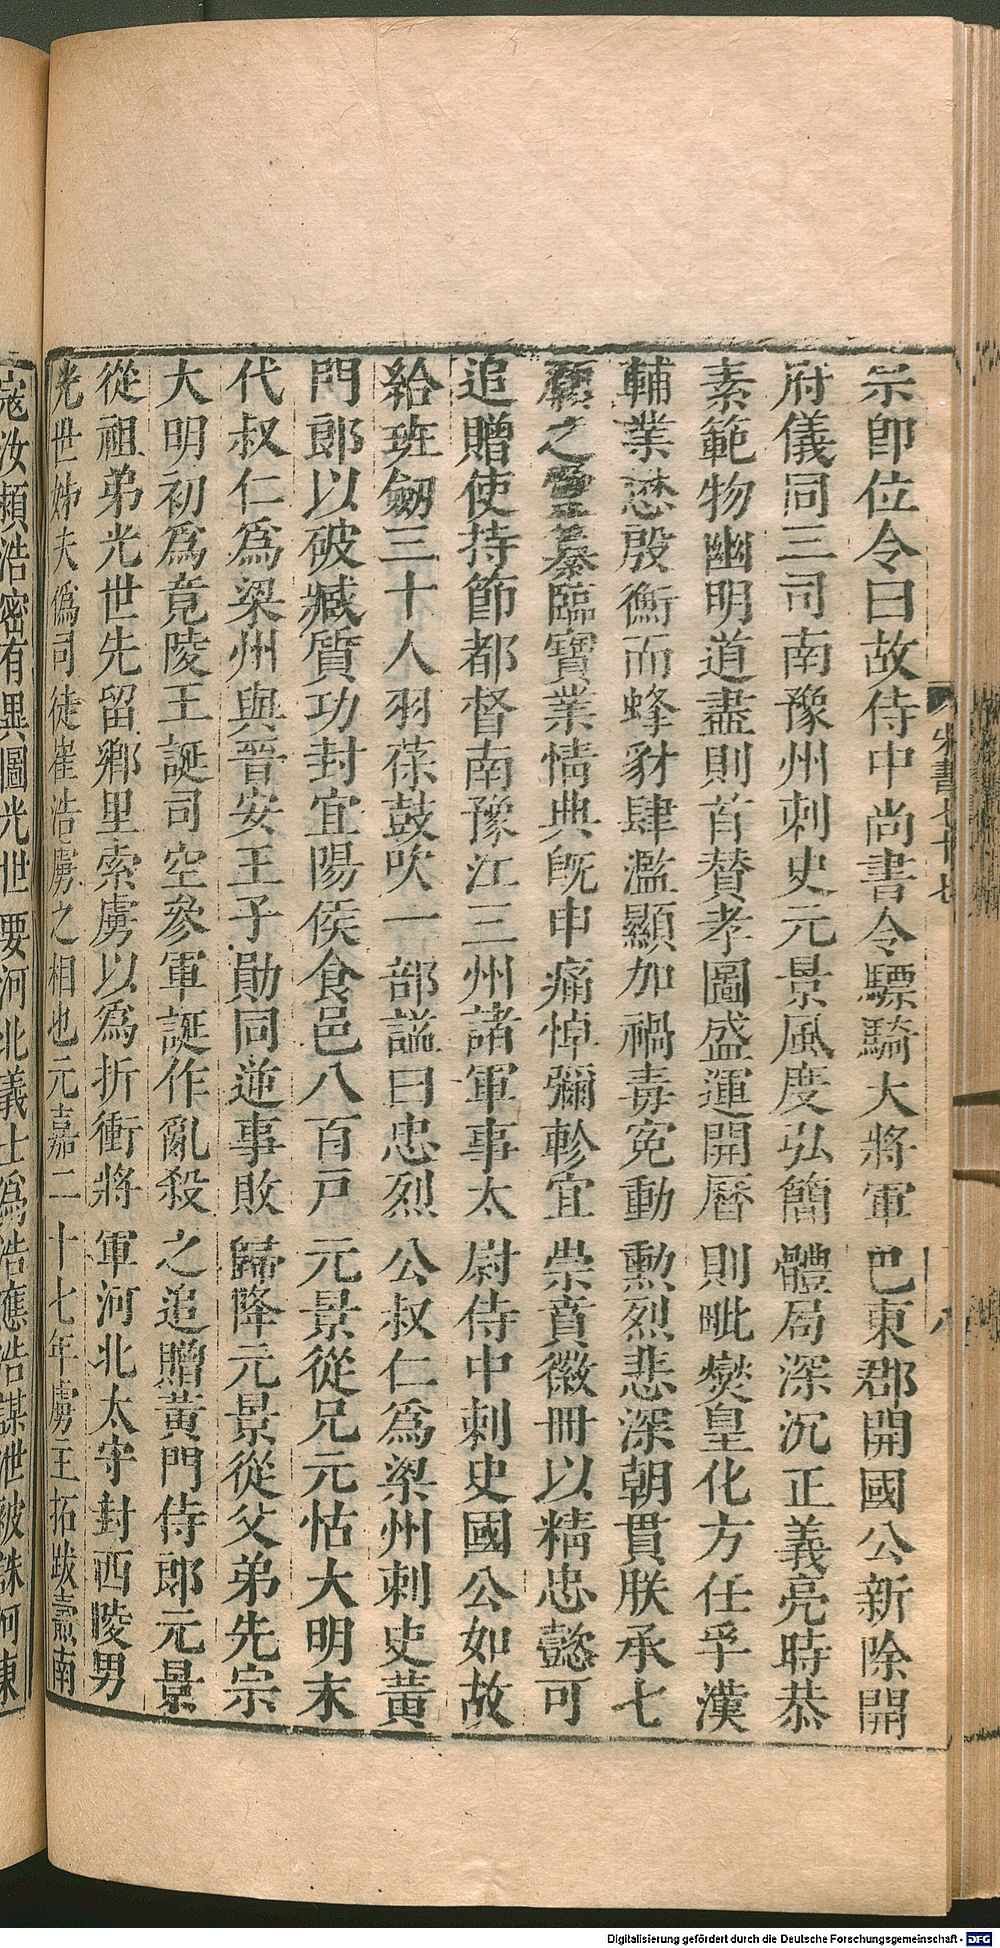 宗卽位令曰故侍中尚書令驃騎大將軍巴東郡開國公新除開
府儀同三司南豫州刺史元景風度弘簡體局深沉正義亮時恭
素範物幽明道盡則首贊孝圖盛運開曆則毗燮皇化方任孚漢
輔業懋殷衡而蜂豺肆濫顯加禍毒寃動勲烈悲深朝貫朕承七
廟之靈纂臨寶業情典旣申痛悼彌軫宜崇賁徽冊以精忠懿可
追贈使持節都督南豫江三州諸軍事太尉侍中刺史國公如故
給班劒三十人羽葆鼓吹一部謚曰忠烈公叔仁爲梁州刺史黃
門郞以破臧質功封宜陽侯食邑八百戸元景從兄元怙大明末
代叔仁爲梁州與晉安王子勛同逆事敗歸降元景從父弟先宗
大明初爲竟陵王誕司空參軍誕作亂殺之追贈黃門侍郞元景
從祖弟光世先留鄕里索虜以爲折衝將軍河北太守封西陵男
光世姊夫僞司徒崔浩虜之相也元嘉二十七年虜主拓跋燾南
寇汝潁浩密有異圖光世要河北義士爲浩應浩謀泄被誅河東
宋書
八
Digitalisierung gefördert durch die Deutsche Forschungsgemeinschaft - DFG